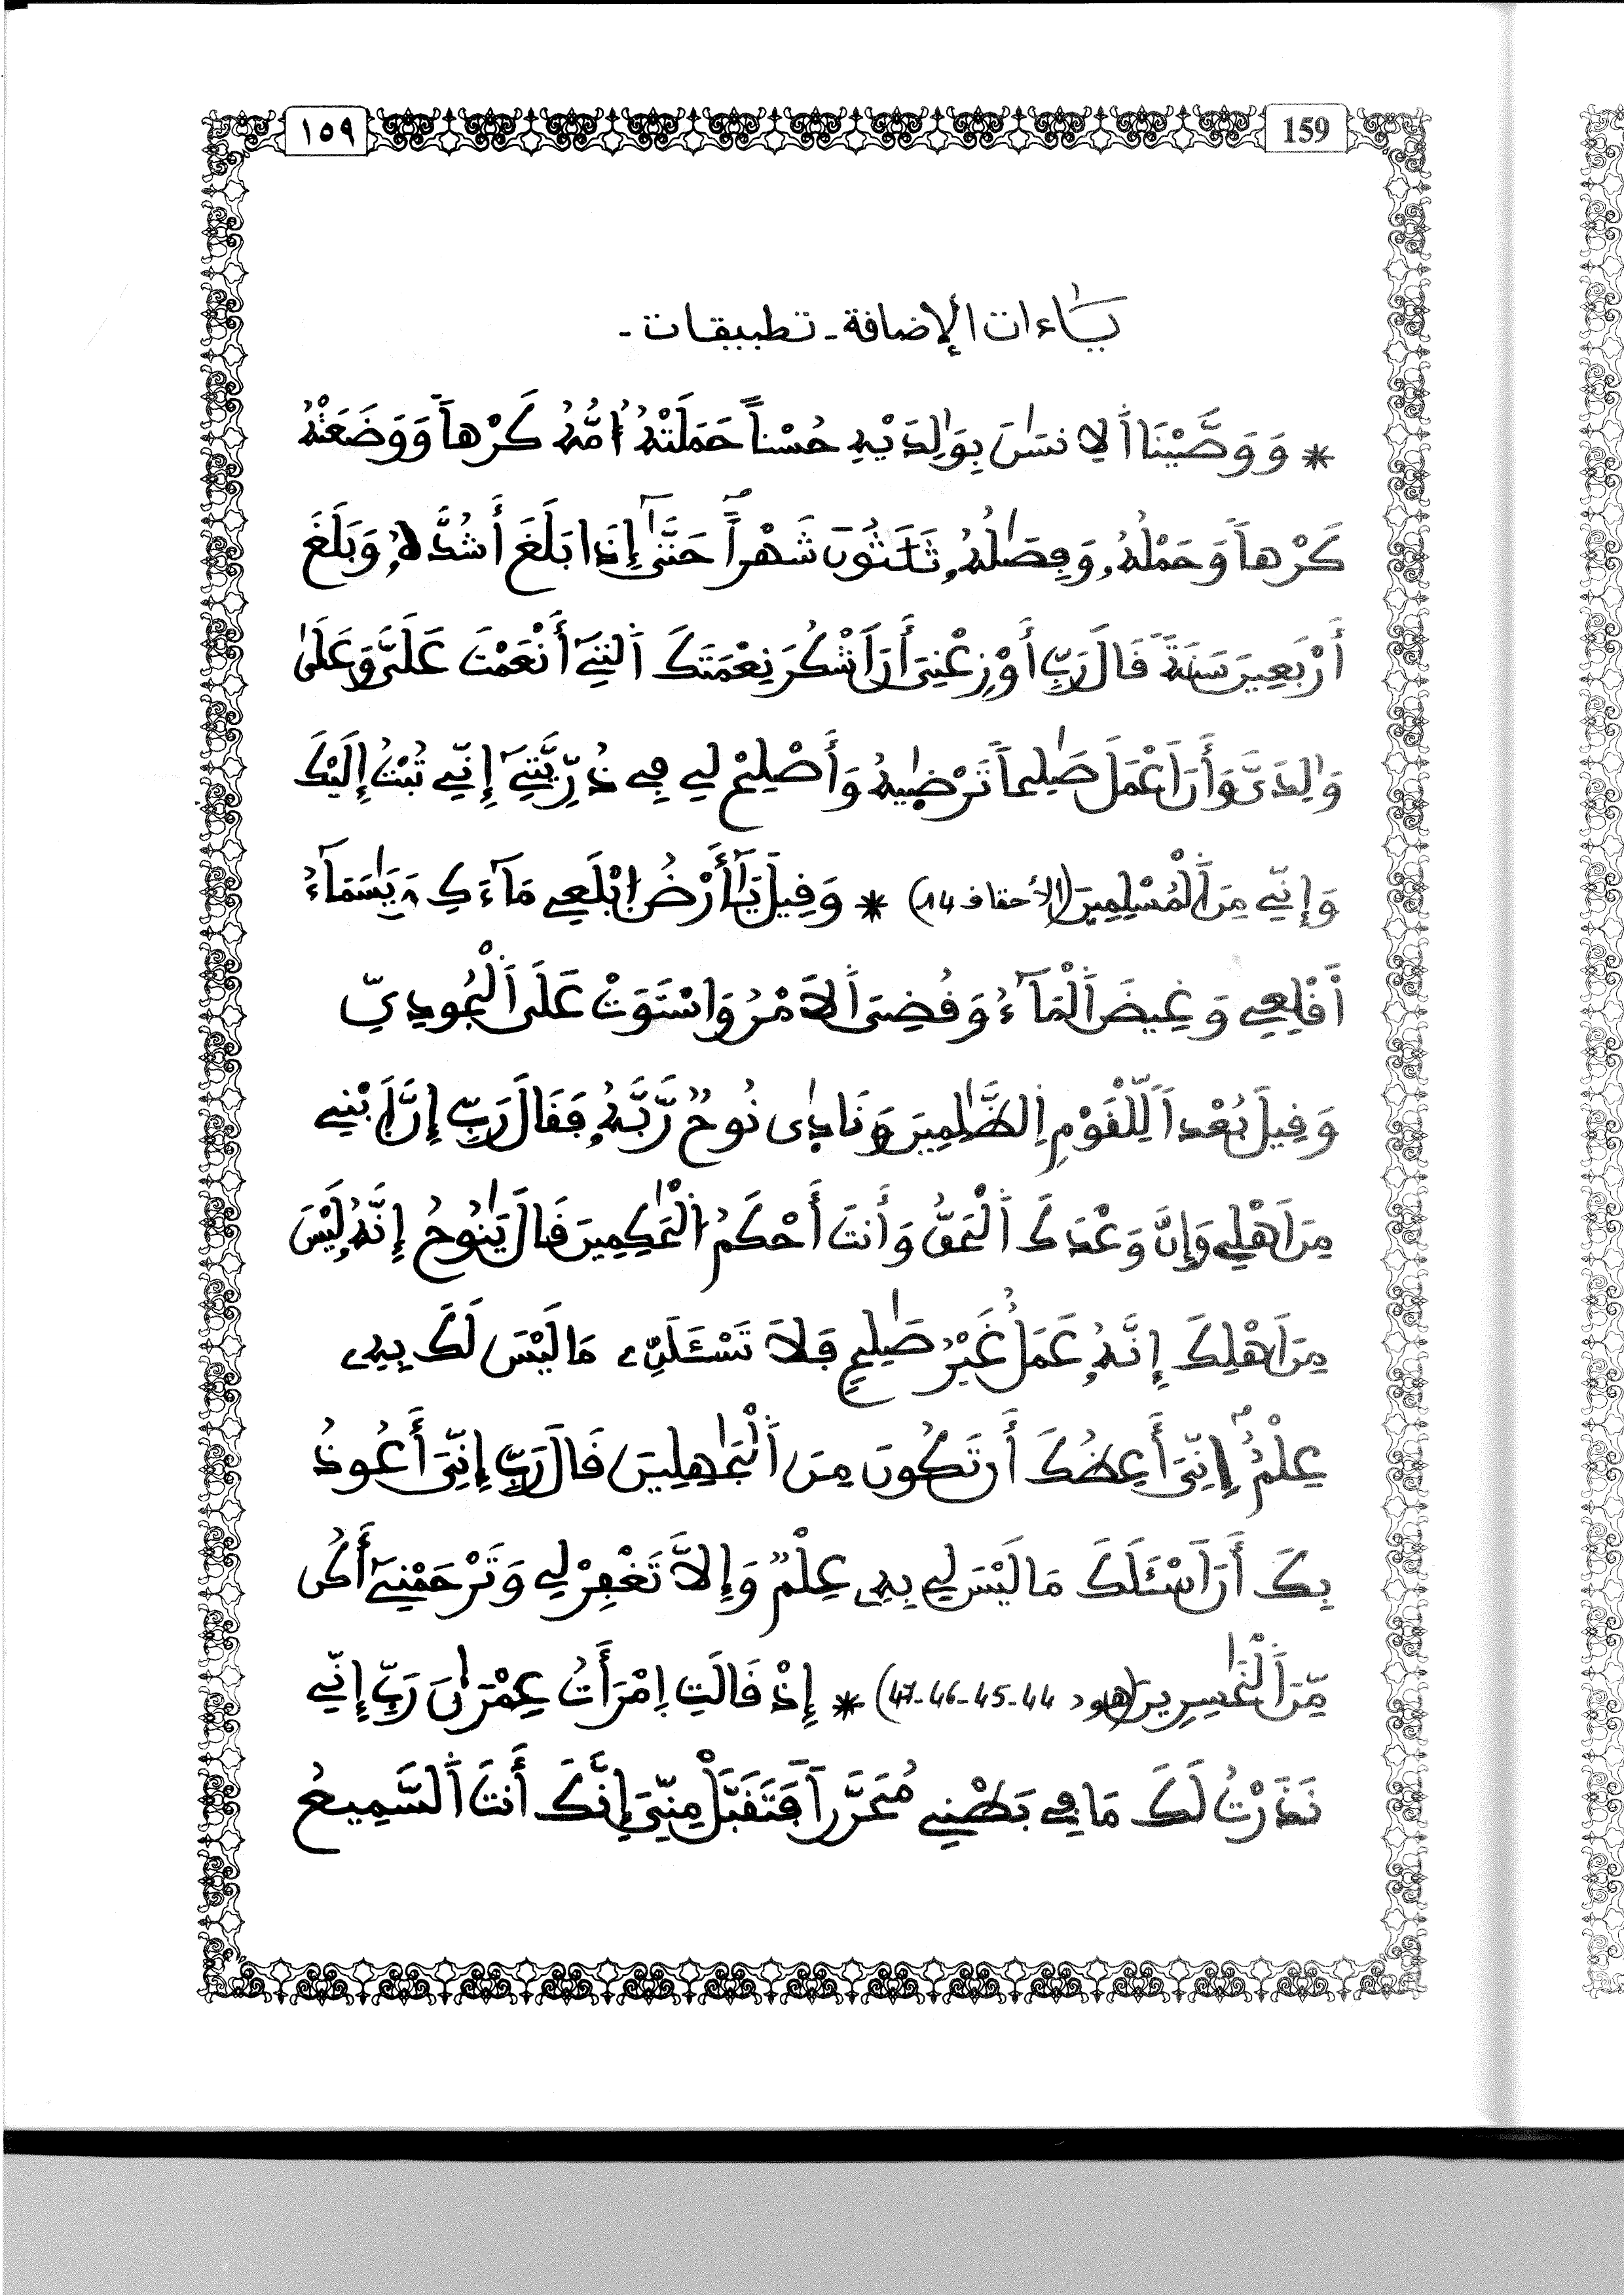 ١٥٩
159
يَـٰاءات الإضافة - تطبيقات -
* وَوَصَّيْنَا اَلِانسَٰنَ بِوَٰلِدَيْهِ حُسْناً حَمَلَتْهُ أُمُّهُ كَرْهاً وَوَضَعَتْهُ
كَرْهاً وَحَمْلُهُۥ وَفِصَٰلُهُۥ ثَلَٰثُونَ شَهْراً حَتَّىٰٓ إِذَا بَلَغَ أَشُدَّهُۥ وَبَلَغَ
أَرْبَعِينَ سَنَةً قَالَ رَبِّ أَوْزِعْنِىَ أَنَ اَشْكُرَ نِعْمَتَكَ اَلتِےٓ أَنْعَمْتَ عَلَىَّ وَعَلَىٰ
وَٰلِدَىَّ وَأَنَ اَعْمَلَ صَٰلِحاً تَرْضَٰيهُ وَأَصْلِحْ لِے فِے ذُرِّيَّتِىَ إِنِّے تُبْتُ إِلَيْكَ
وَإِنِّے مِنَ اَلْمُسْلِمِينَ (الأحقاف 14) * وَقِيلَ يَٰٓأَرْضُ اُبْلَعِے مَآءَكِ وَيَٰسَمَآءُ
أَقْلِعِے وَغِيضَ اَلْمَآءُ وَقُضِىَ اَلَامْرُ وَاسْتَوَتْ عَلَى اَلْجُودِيِّ
وَقِيلَ بُعْداً لِّلْقَوْمِ اِلظَّٰلِمِينَ وَنَادٜىٰ نُوحٌ رَّبَّهُۥ فَقَالَ رَبِّ إِنَّ اَبْنِے
مِنَ اَهْلِے وَإِنَّ وَعْدَكَ اَلْحَقُّ وَأَنتَ أَحْكَمُ اُلْحَٰكِمِينَ قَالَ يَٰنُوحُ إِنَّهُۥ لَيْسَ
مِنَ اَهْلِكَ إِنَّهُۥ عَمَلٌ غَيْرُ صَٰلِحٍ فَلَا تَسْـَٔلَنِّۦ مَا لَيْسَ لَكَ بِهِۦ
عِلْمٌ اِنِّىَ أَعِظُكَ أَن تَكُونَ مِنَ اَلْجَٰهِلِينَ قَالَ رَبِّ إِنِّىَ أَعُوذُ
بِكَ أَنَ اَسْـَٔلَكَ مَا لَيْسَ لِے بِهِۦ عِلْمٌ وَإِلَّا تَغْفِرْ لِے وَتَرْحَمْنِےٓ أَكُن
مِّنَ اَلْخَٰسِرِينَ (هود 44-45-46-47) * إِذْ قَالَتِ اِمْرَأَتُ عِمْرَٰنَ رَبِّ إِنِّے
نَذَرْتُ لَكَ مَا فِے بَطْنِے مُحَرَّراً فَتَقَبَّلْ مِنِّىَ إِنَّكَ أَنتَ اَلسَّمِيعُ